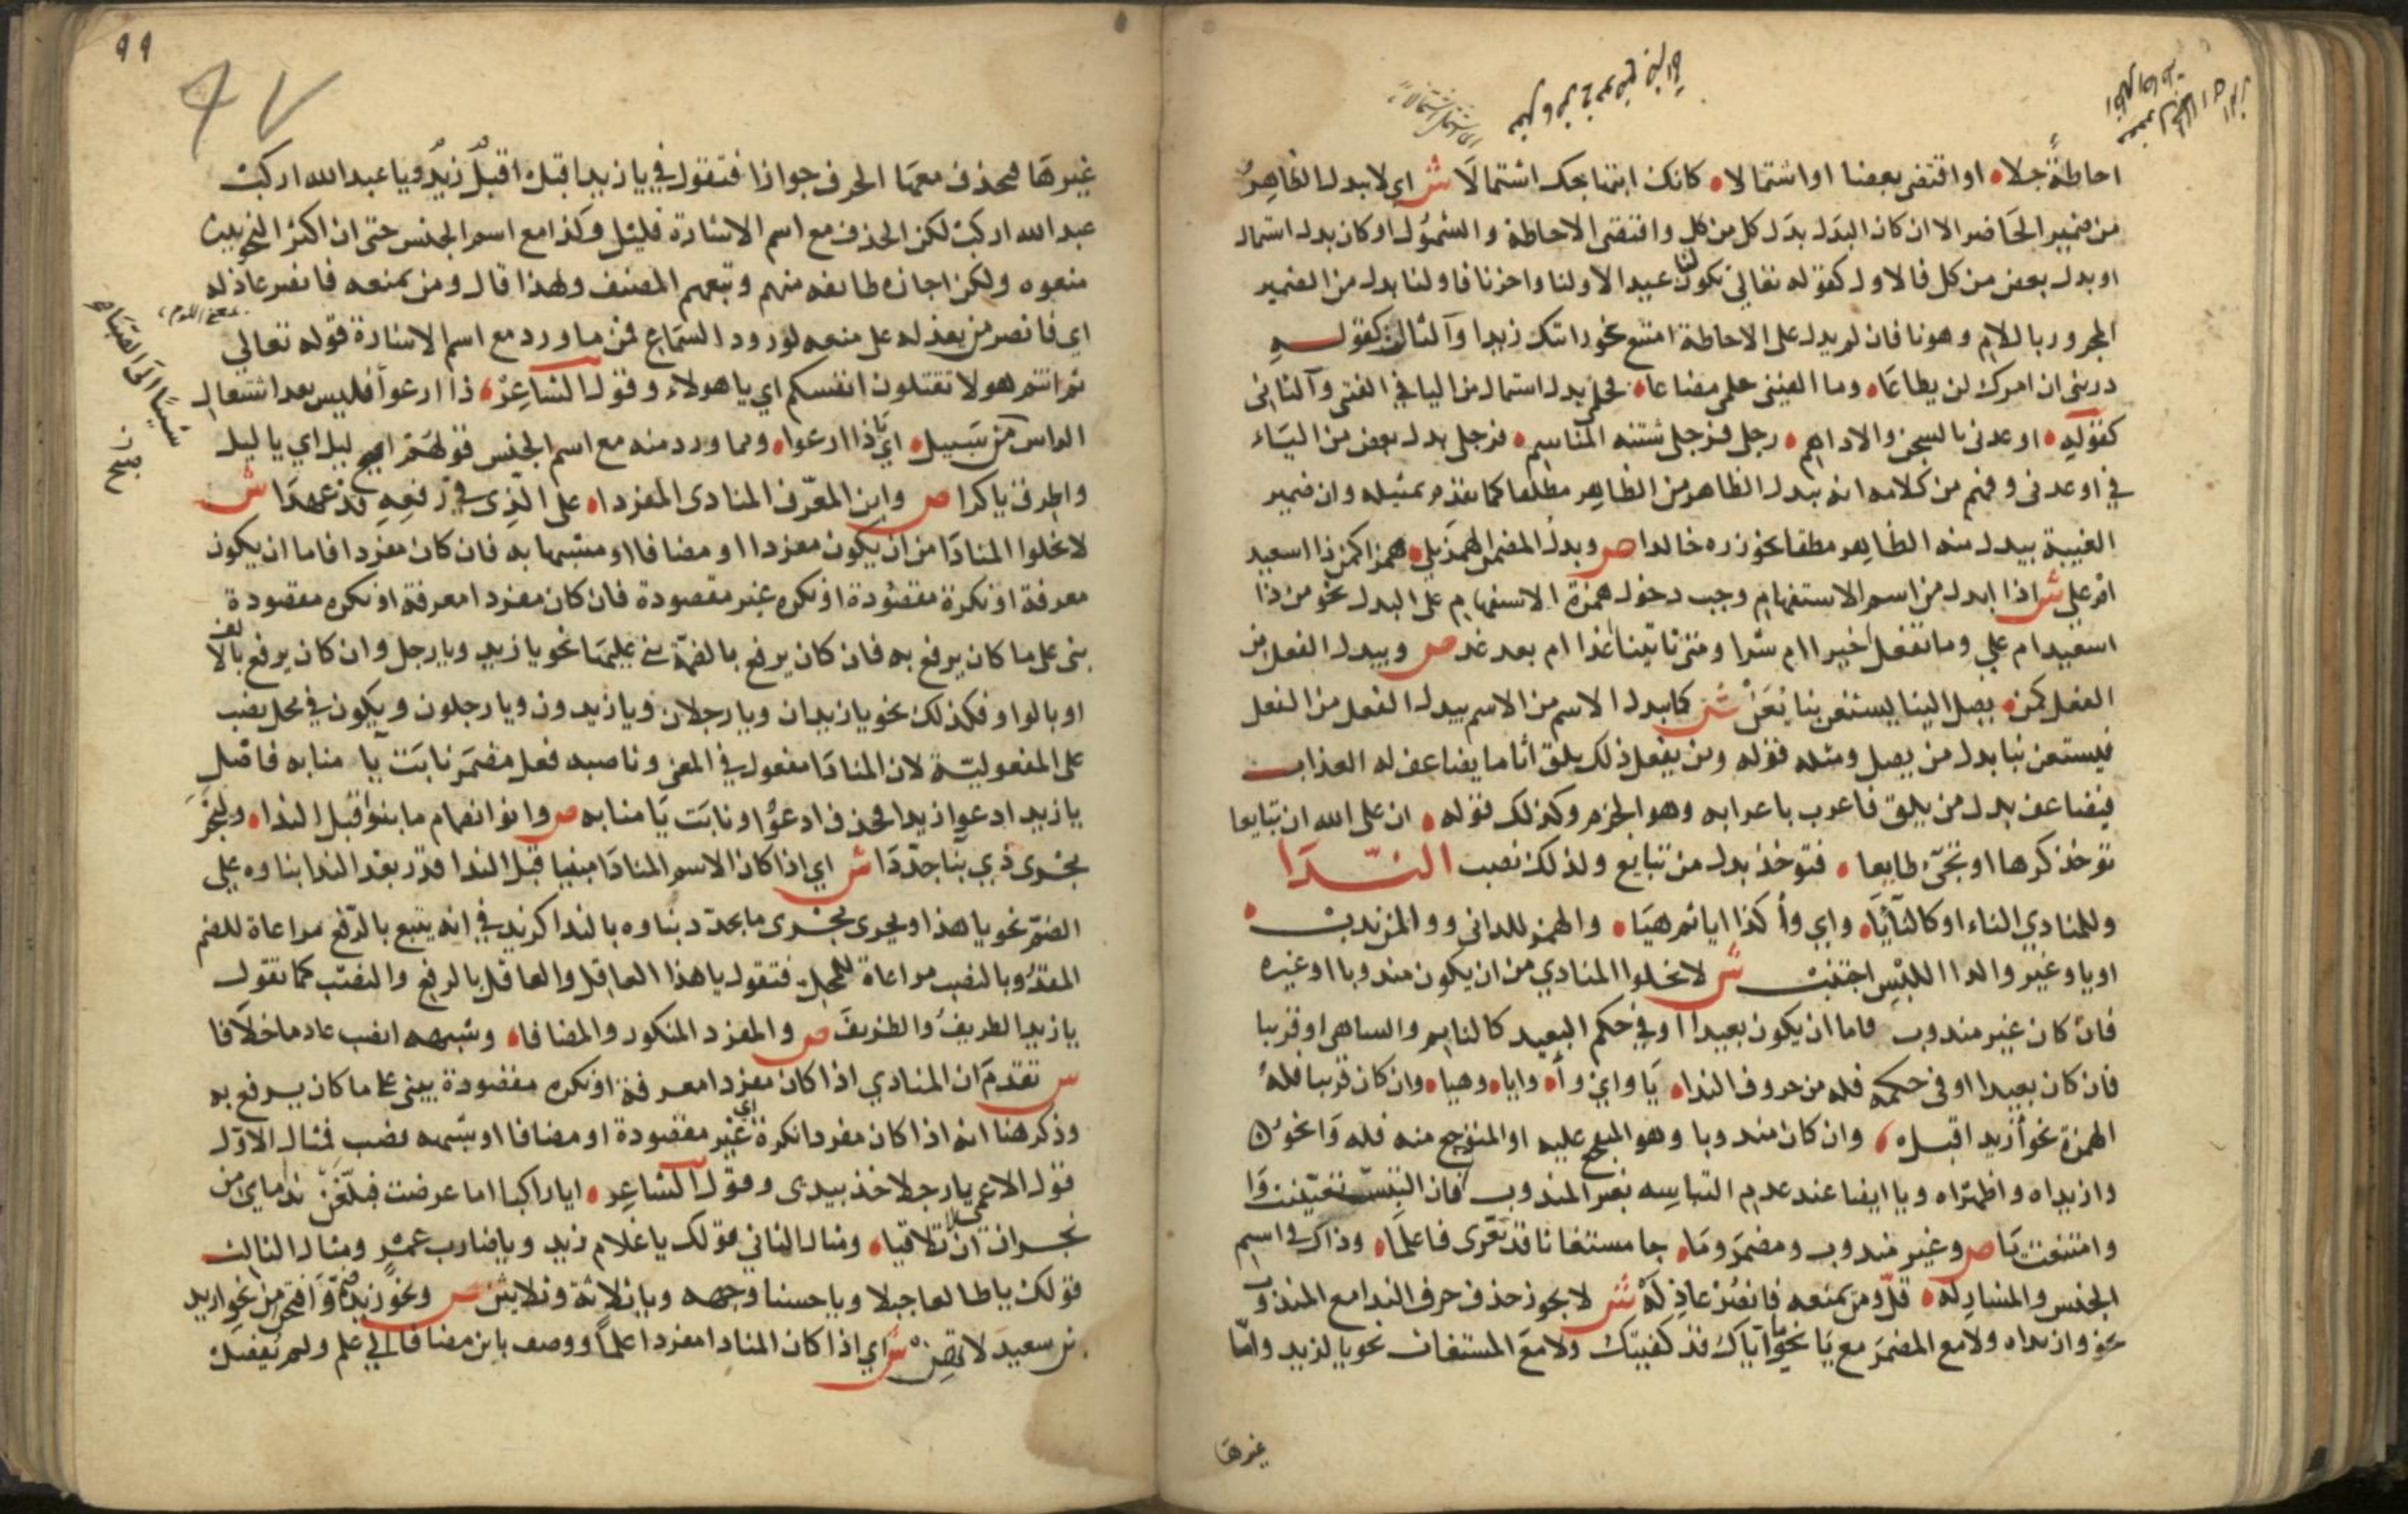 احاطة جلا او اقتضى بعضا او اشتمالا كانك ابتهاجك استمالا ش اي لا يبدل الظاهر
من ضمير الحاضر الا ان كان البدل بدل كل من كل واقتضى الاحاطة والشمول او كان بدل اشتمال
او بدل بعض من كل فالاول كقوله تعالى تكون لنا عيدا لاولنا واخرنا فاولنا بدل من الضمير
المجرور باللام وهو نا فان لم يدل على الاحاطة امتنع نحو رايتك زيدا والثاني كقوله
ذريني ان امرك لن يطاعا وما الفيتني حلمي مضاعا فحلمي بدل اشتمال من اليا في الفيتني والثاني
كقوله اوعدني بالسجن والاداهم رجلي فرجلي شثنة المناسم فرجلي بدل بعض من الياء
في اوعدني وفهم من كلامه انه يبدل الظاهر من الظاهر مطلقا كما تقدم تمثيله وان ضمير
الغيبة يبدل منه الظاهر مطلقا نحو زره خالدا ص وبدل المضمن الهمز يلي همزا كمن ذا اسعيد
ام علي ش اذا ابدل من اسم الاستفهام وجب دخول همزة الاستفهام على البدل نحو من ذا
اسعيد ام علي وما تفعل اخيرا ام شرا ومتى تاتينا اغدا ام بعد غد ص ويبدل الفعل من
الفعل كمن يصل الينا يستعن بنا يعن ش كما يبدل الاسم من الاسم يبدل الفعل من الفعل
فيستعن بنا بدل من يصل ومثله قوله ومن يفعل ذلك يلق اثاما يضاعف له العذاب
فيضاعف بدل من يلق فاعرب باعرابه وهو الجزم وكذلك قوله ان على الله ان تبايعا
توخذ كرها او تجئ طايعا فتوخذ بدل من تبايع ولذلك نصب النّدا
وللمنادي الناء او كالناء يا واي وآ كذا ايا ثم هيا والهمز للداني ووا لمن ندب
او يا وغير وا لدا اللبس اجتنب ش لا يخلوا المنادي من ان يكون مندوبا او غيره
فان كان غير مندوب فاما ان يكون بعيدا او في حكم البعيد كالنايم والساهي او قريبا
فان كان بعيدا او في حكمه فله من حروف الندا يا واي وآ وايا وهيا وان كان قريبا فله
الهمزة نحو أزيد اقبل وان كان مندوبا وهو المتفجع عليه او المتوجع منه فله وا نحو
وازيداه واظهراه ويا ايضا عند عدم التباسه بغير المندوب فان التبس تعينت وا
وامتنعت يا ص وغير مندوب ومضمر وما جا مستغاثا قد تعرى فاعلما وذاك في اسم
الجنس والمشار له قل ومن يمنعه فانصر عاذله ش لا يجوز حذف حرف الندا مع المندوب
نحو وازيداه ولا مع المضمر مع يا نحو يا اياك قد كفيتك ولا مع المستغاث نحو يا لزيد واما
غيرها
٩٩
غيرها فيحذف معها الحرف جوازا فتقول في يا زيد اقبل اقبل زيد ويا عبدالله اركب
عبدالله اركب لكن الحذف مع اسم الاشارة قليل وكذا مع اسم الجنس حتى ان اكثر النحويين
منعوه ولكن اجازه طائفة منهم وتبعهم المصنف ولهذا قال ومن يمنعه فانصر عاذله
اي فانصر من يعذله على منعه لورود السماع فمن ما ورد مع اسم الاشارة قوله تعالى
ثم انتم هولا تقتلون انفسكم اي يا هولاء وقول الشاعر ذا ارعواء فليس بعد اشتعال
الراس شيبا الى الصبا من سبيل اي يا ذا ارعوا ومما ورد منه مع اسم الجنس قولهم اصبح ليل اي يا ليل
واطرق يا كرا ص وابن المعرّف المنادى المفردا على الذي في رفعه قد عهدا ش
لا يخلوا المنادا من ان يكون مفردا او مضافا او مشبها به فان كان مفردا فاما ان يكون
معرفة او نكرة مقصودة او نكره غير مقصودة فان كان مفردا معرفة او نكره مقصودة
بني على ما كان يرفع به فان كان يرفع بالضمة بني عليها نحو يا زيد ويا رجل وان كان يرفع بالالف
او بالواو فكذلك نحو يا زيدان ويا رجلان ويا زيدون ويا رجلون ويكون في محل نصب
على المفعولية لان المنادا مفعول في المعنى وناصبه فعل مضمر نابت يا منابه فاصل
يا زيد ادعوا زيدا فحذف ادعوا ونابت يا منابه ص وانو انضمام ما بنوا قبل الندا وليجر
مجرى ذي بنا جددا ش اي اذا كان الاسم المنادا مبنيا قبل الندا قدر بعد الندا بناوه على
الضم نحو يا هذا ويجرى مجرى ما تجدد بناوه بالندا كزيد في انه يتبع بالرفع مراعاة للضم
المقدر وبالنصب مراعاة للمحل فتقول يا هذا العاقل والعاقل بالرفع والنصب كما تقول
يا زيد الظريف والظريف ص والمفرد المنكور والمضافا وشبهه انصب عادما خلافا
ش تقدم ان المنادي اذا كان مفردا معرفة او نكره مقصودة يبنى على ما كان يرفع به
وذكر هنا انه اذا كان مفردا نكرة اي غير مقصودة او مضافا او شبهه نصب فمثال الاول
قول الاعمى يا رجلا خذ بيدي وقول الشاعر ايا راكبا اما عرضت فبلغن نداماي من
نجران ان لا تلاقيا ومثال الثاني قولك يا غلام زيد ويا ضارب عمرو ومثال الثالث
قولك يا طالعا جبلا ويا حسنا وجهه ويا ثلاثة وثلاثين ص ونحو زيد ضم وافتحن من نحو ازيد
بن سعيد لا تهن ش اي اذا كان المنادا مفردا علما ووصف بابن مضافا الي علم ولم يفصل